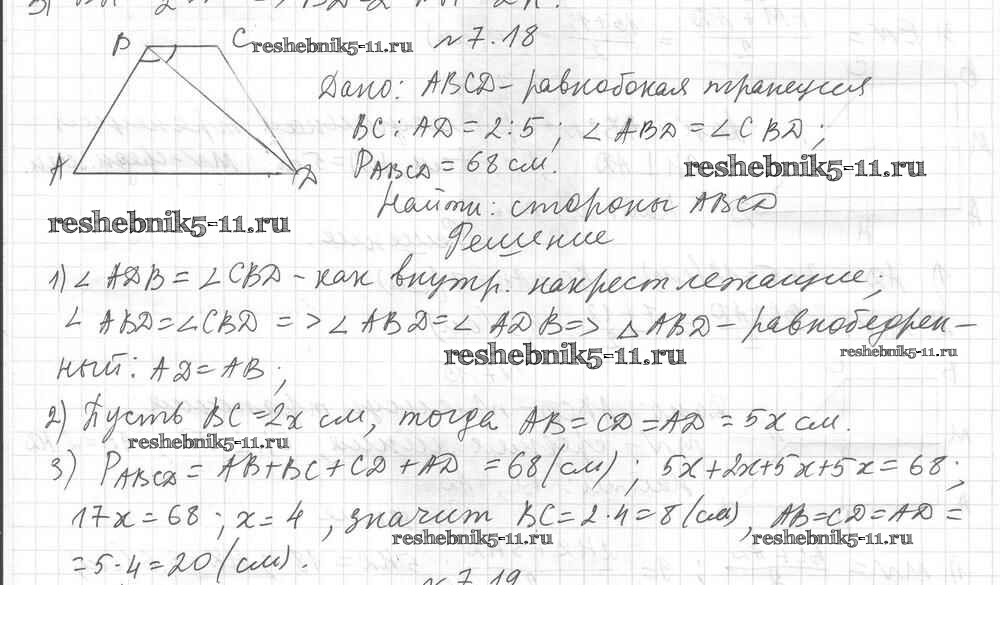 B C reshebnik5-11.ru №7.18
Дано: ABCD - равнобокая трапеция
BC : AD = 2:5 ; ∠ABD = ∠CBD ;
A D P ABCD = 68 см. reshebnik5-11.ru
Найти: стороны ABCD
reshebnik5-11.ru
Решение
1) ∠ADB = ∠CBD - как внутр. накрест лежащие ;
∠ABD = ∠CBD => ∠ABD = ∠ADB => △ABD - равнобедрен-
reshebnik5-11.ru reshebnik5-11.ru
ный : AD = AB ;
2) Пусть BC = 2x см, тогда AB = CD = AD = 5x см.
reshebnik5-11.ru
3) P ABCD = AB + BC + CD + AD = 68 (см) ; 5x + 2x + 5x + 5x = 68 ;
17x = 68 ; x = 4 , значит BC = 2·4 = 8 (см), AB = CD = AD =
reshebnik5-11.ru reshebnik5-11.ru
= 5·4 = 20 (см).
№7.19